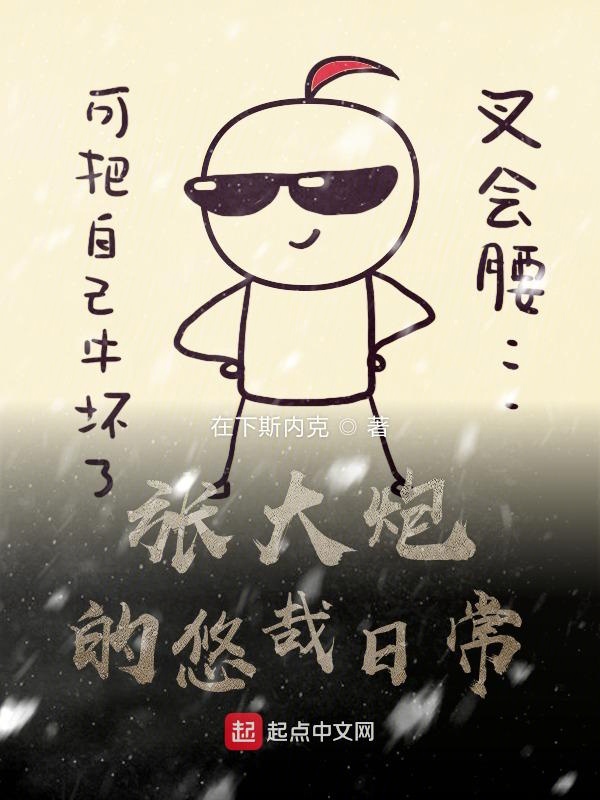 可把自己牛坏了
叉会腰...
在下斯内克 ◎ 著
张大炮
的悠哉日常
起 起点中文网